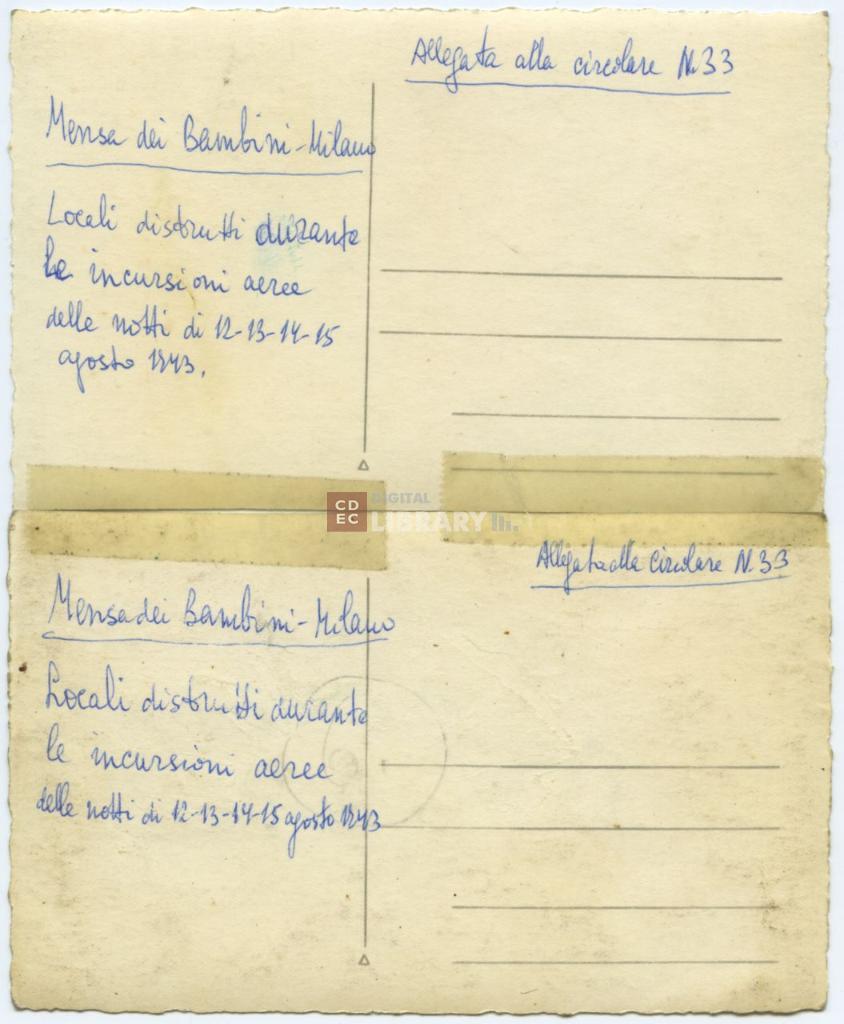 Allegata alla circolare N. 33
Mensa dei Bambini - Milano
Locali distrutti durante
le incursioni aeree
delle notti di 12-13-14-15
agosto 1943.
CDEC DIGITAL LIBRARY
Allegata alla Circolare N. 33
Mensa dei Bambini - Milano
Locali distrutti durante
le incursioni aeree
delle notti di 12-13-14-15 agosto 1943